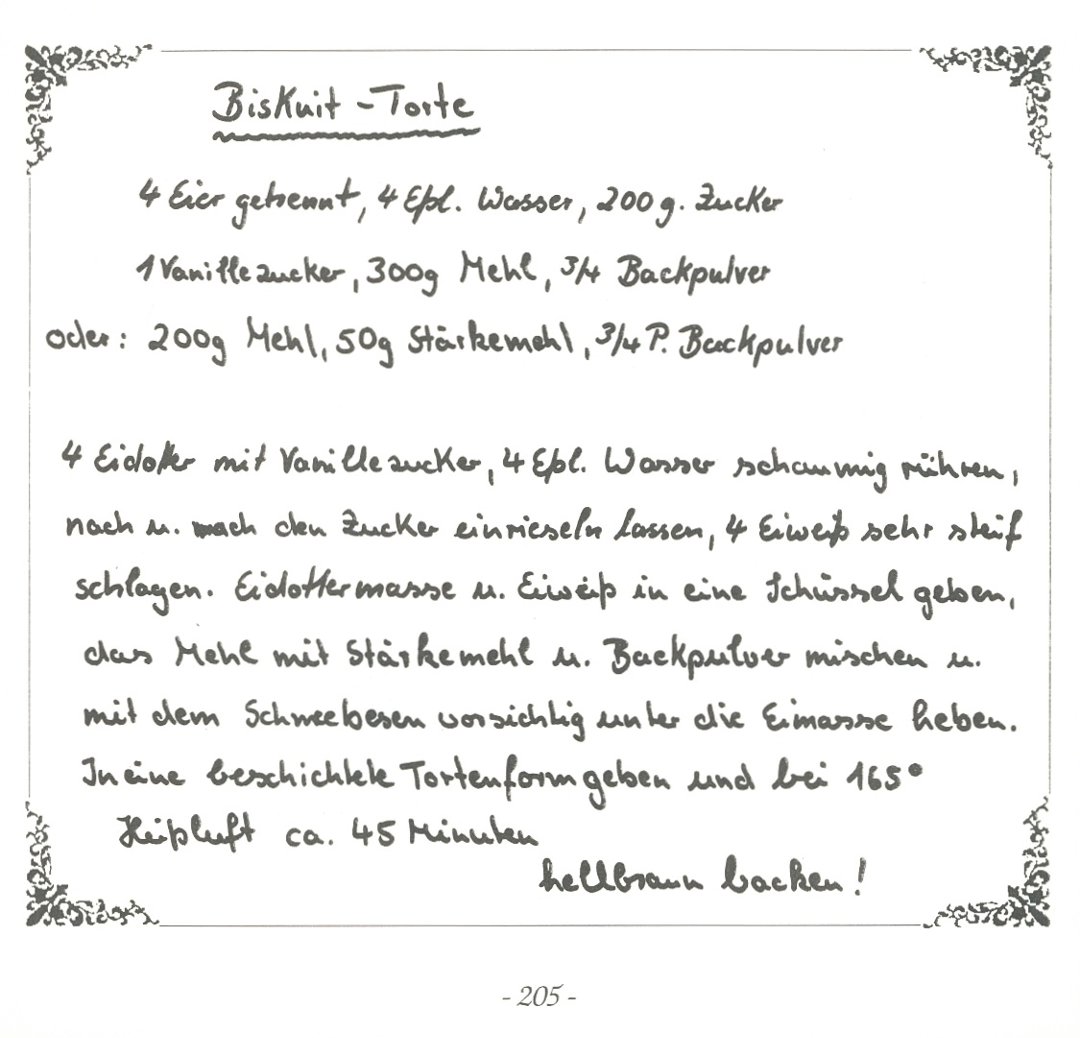 Biskuit - Torte
4 Eier getrennt, 4 Eßl. Wasser, 200 g. Zucker
1 Vanillezucker, 300g Mehl, 3/4 Backpulver
oder: 200g Mehl, 50g Stärkemehl, 3/4 P. Backpulver
4 Eidotter mit Vanillezucker, 4 Eßl. Wasser schaumig rühren,
nach u. nach den Zucker einrieseln lassen, 4 Eiweiß sehr steif
schlagen. Eidottermasse u. Eiweiß in eine Schüssel geben,
das Mehl mit Stärkemehl u. Backpulver mischen u.
mit dem Schneebesen vorsichtig unter die Eimasse heben.
In eine beschichtete Tortenform geben und bei 165°
Heißluft ca. 45 Minuten
hellbraun backen!
- 205 -